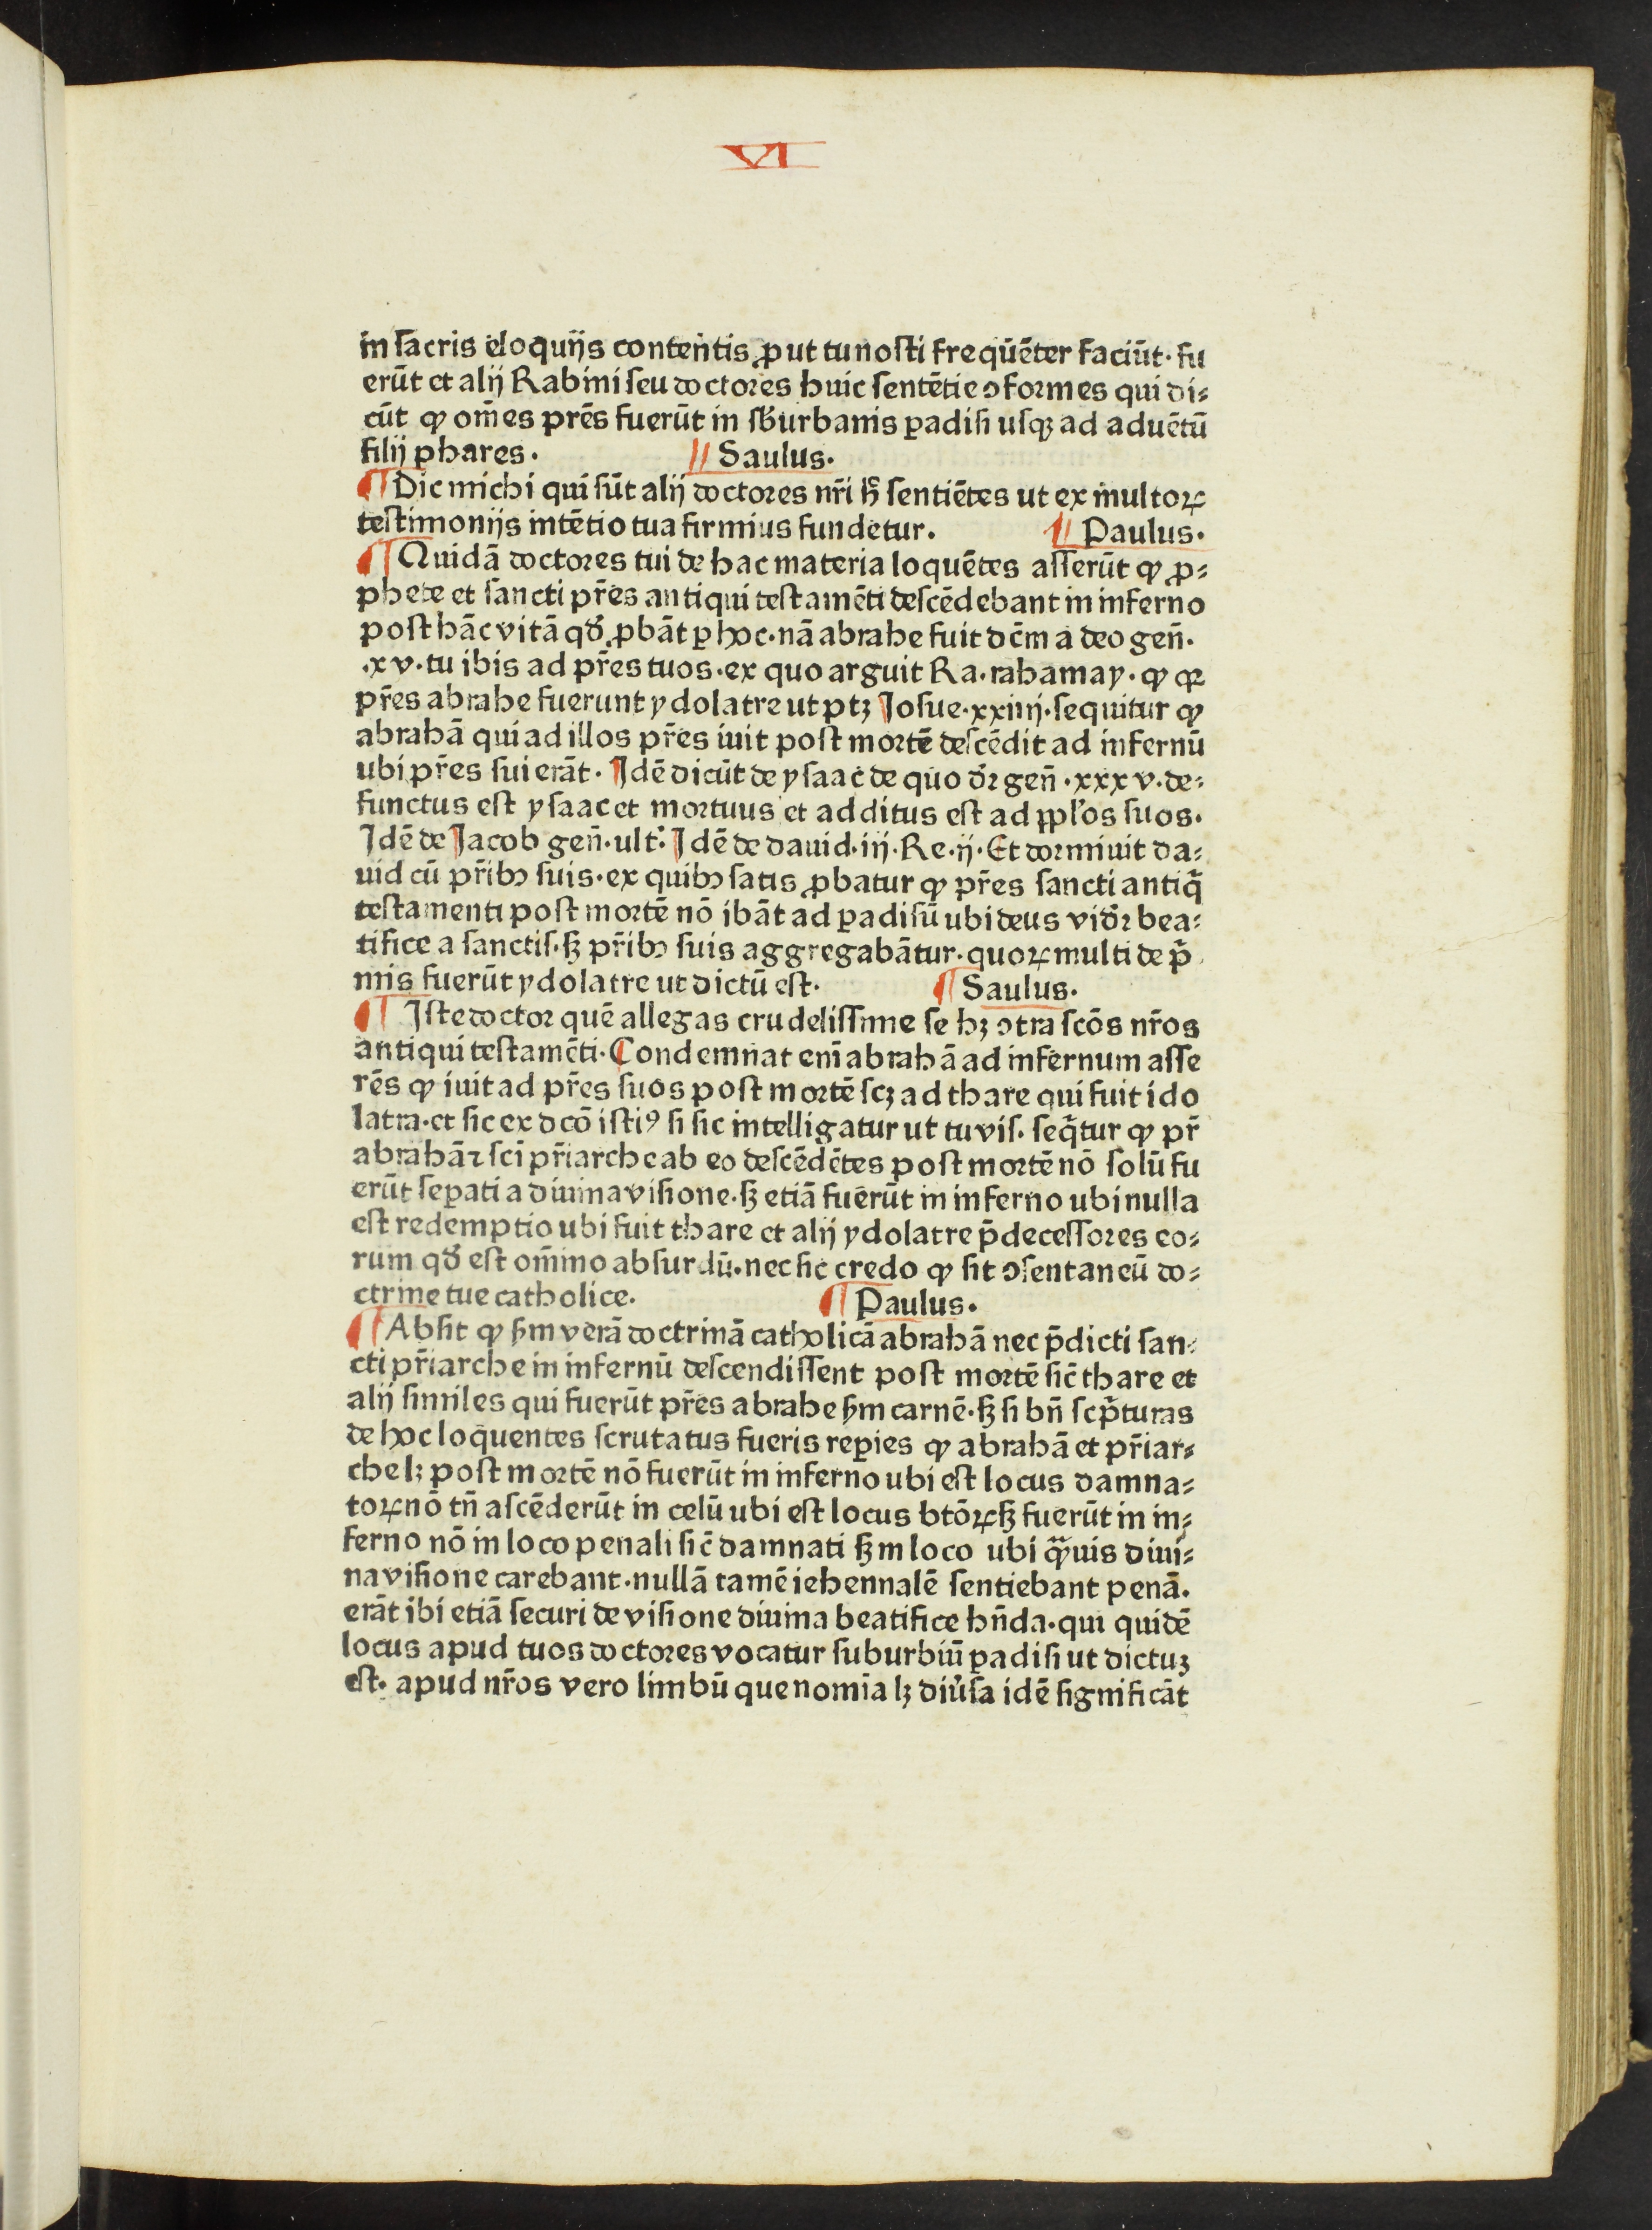 VI
in sacris eloquijs contentis ꝓut tu nosti frequēter faciūt· fu
erūt et alij Rabini seu doctores huic sentētie ↄformes qui di⸗
cūt ꝙ om̄es pr̄es fuerūt in sb̓urbanis ꝑadisi usqꝫ ad aduētū
filij phares· Saulus·
¶ Dic michi qui sūt alij doctores nr̄i h̄ sentiētes ut ex multoꝝ
testimonijs intētio tua firmius fundetur. ¶ Paulus·
¶ Quidā doctores tui de hac materia loquētes asserūt ꝙ ꝓ⸗
phete et sancti pr̄es antiqui testamēti descēdebant in inferno
post hāc vitā qd̓ ꝓbāt ꝑ hoc· nā abrahe fuit dc̄m a deo gen̄·
·xv· tu ibis ad pr̄es tuos· ex quo arguit Ra· rahamay· ꝙ qꝛ
pr̄es abrahe fuerunt ydolatre ut ptꝫ Josue·xxiiij· sequitur ꝙ
abrahā qui ad illos pr̄es iuit post mortē descēdit ad infernū
ubi pr̄es sui erāt· Idē dicūt de ysaac de quo d̓r gen̄·xxxv·de⸗
functus est ysaac et mortuus et additus est ad ppl̓os suos·
Idē de Jacob gen̄·ult̓· Idē de dauid·iij·Re·ij· Et dormiuit da⸗
uid cū pr̄ibꝰ suis· ex quibꝰ satis ꝓbatur ꝙ pr̄es sancti antiq̄
testamenti post mortē nō ibāt ad ꝑadisū ubi deus vid̓r bea⸗
tifice a sanctis· sꝫ pr̄ibꝰ suis aggregabātur· quoꝝ multi de p̄
mis fuerūt ydolatre ut dictū est· ¶ Saulus·
¶ Iste doctor quē allegas crudelissime se hꝫ ↄtra scōs nr̄os
antiqui testamēti· Condemnat enī abrahā ad infernum asse
rēs ꝙ iuit ad pr̄es suos post mortē scꝫ ad thare qui fuit ido
latra· et sic ex dcō istiꝰ si sic intelligatur ut tu vis· seq̄tur ꝙ pr̄
abrahā ⁊ sc̄i pr̄iarche ab eo descēdētes post mortē nō solū fu
erūt seꝑati a diuina visione· sꝫ etiā fuerūt in inferno ubi nulla
est redemptio ubi fuit thare et alij ydolatre p̄decessores eo⸗
rum qd̓ est om̄ino absurdū· nec sic credo ꝙ sit ↄsentaneū do⸗
ctrine tue catholice· ¶ Paulus·
¶ Absit ꝙ sm̄ verā doctrinā catholicā abrahā nec p̄dicti san⸗
cti pr̄iarche in infernū descendissent post mortē sic̄ thare et
alij similes qui fuerūt pr̄es abrahe sm̄ carnē· sꝫ si bn̄ scp̄turas
de hoc loquentes scrutatus fueris reꝑies ꝙ abrahā et pr̄iar⸗
che lꝫ post mortē nō fuerūt in inferno ubi est locus damna⸗
toꝝ nō tn̄ ascēderūt in celū ubi est locus btōꝝ sꝫ fuerūt in in⸗
ferno nō in loco penali sic̄ damnati sꝫ in loco ubi qᷓuis diui⸗
na visione carebant· nullā tamē iehennalē sentiebant penā.
erāt ibi etiā securi de visione diuina beatifice hn̄da· qui quidē
locus apud tuos doctores vocatur suburbiū ꝑadisi ut dictuꝫ
est· apud nr̄os vero limbū que nomīa lꝫ diu̓sa idē significāt